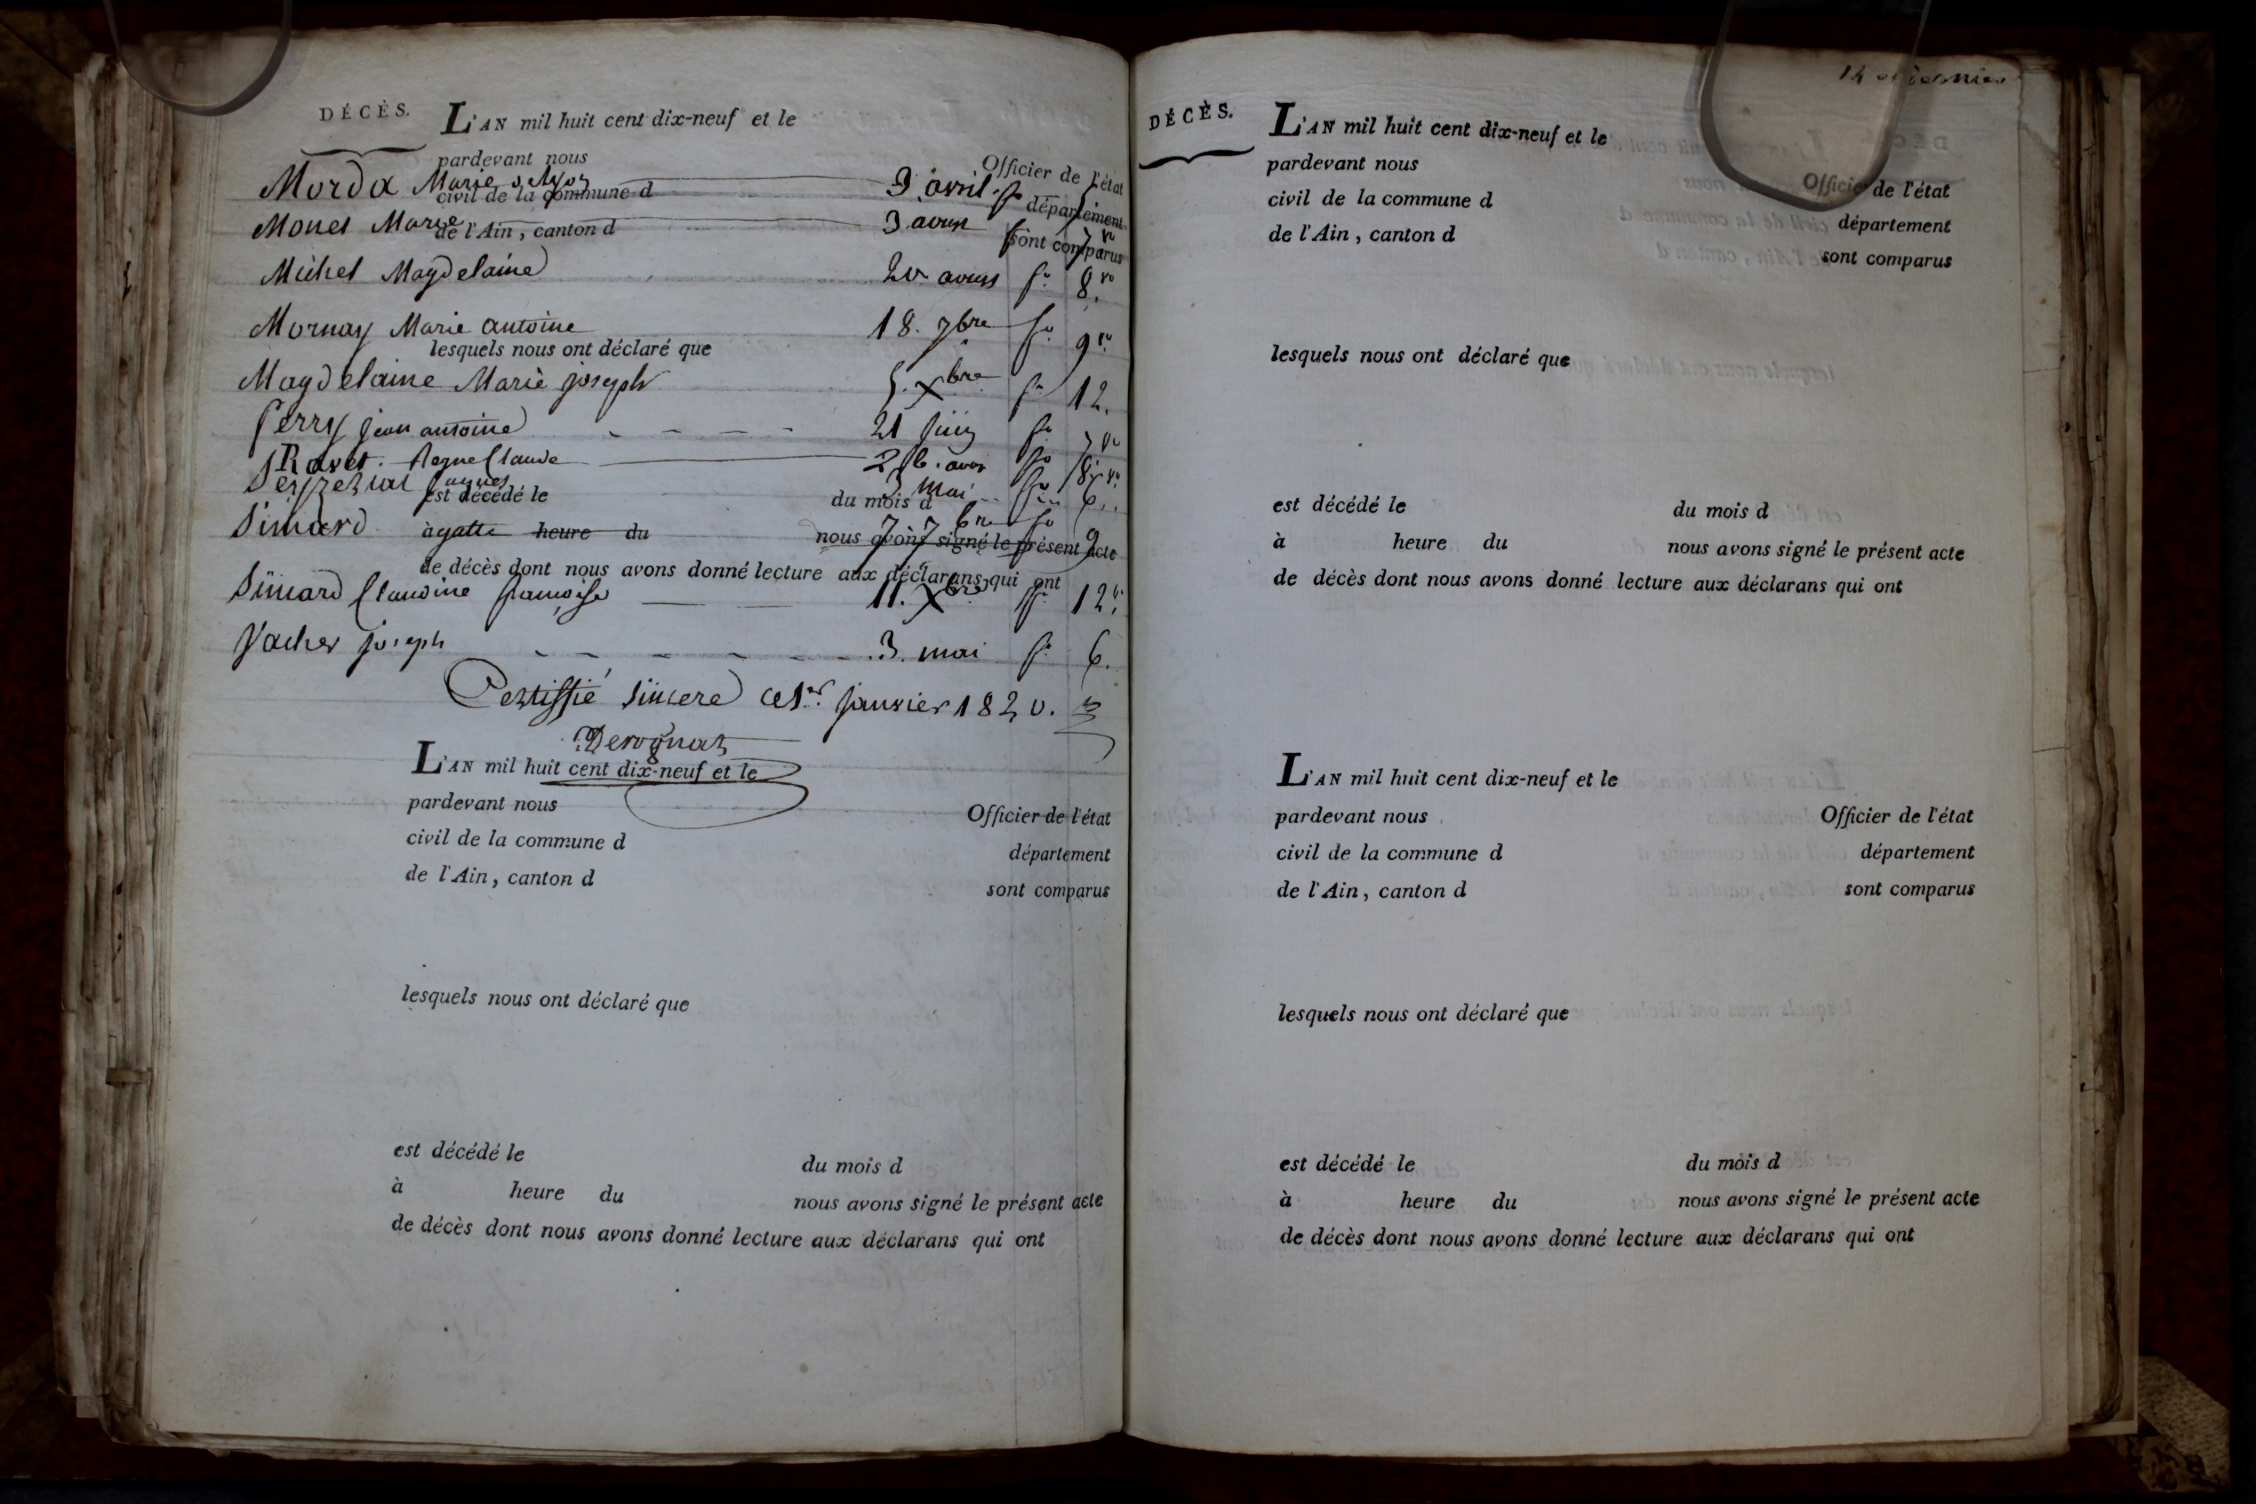 DÉCÈS.
L'AN mil huit cent dix-neuf et le
pardevant nous
Officier de l'état
Morda Marie 3 avril fo
civil de la commune d
département
Monet Marie 3 aoust fo 7 vo
de l'Ain, canton d
sont comparus
Michel Magdelaine 20 aoust fo 8. vo
Mornay Marie antoine 18. 7bre fo 9 vo
lesquels nous ont déclaré que
Magdelaine Marie joseph 5. Xbre fo 12.
Perry jean antoine 21 juin fo 7 vo
Ravet. Claude 26. aoust fo 8 vo
3 mai fo 6.
est décédé le
du mois d
Simard agatte 7 7bre fo 9
à heure du
nous avons signé le présent acte
de décès dont nous avons donné lecture aux déclarans qui ont
Simard Claudine françoise 11. Xbre fo 12 vo
Vacher joseph 3. mai fo 6.
Certiffié sincere ce 1er. janvier 1820.
Derognat
L'AN mil huit cent dix-neuf et le
pardevant nous
Officier de l'état
civil de la commune d
département
de l'Ain, canton d
sont comparus
lesquels nous ont déclaré que
est décédé le
du mois d
à heure du
nous avons signé le présent acte
de décès dont nous avons donné lecture aux déclarans qui ont
DÉCÈS.
L'AN mil huit cent dix-neuf et le
pardevant nous
Officier de l'état
civil de la commune d
département
de l'Ain, canton d
sont comparus
lesquels nous ont déclaré que
est décédé le
du mois d
à heure du
nous avons signé le présent acte
de décès dont nous avons donné lecture aux déclarans qui ont
L'AN mil huit cent dix-neuf et le
pardevant nous
Officier de l'état
civil de la commune d
département
de l'Ain, canton d
sont comparus
lesquels nous ont déclaré que
est décédé le
du mois d
à heure du
nous avons signé le présent acte
de décès dont nous avons donné lecture aux déclarans qui ont